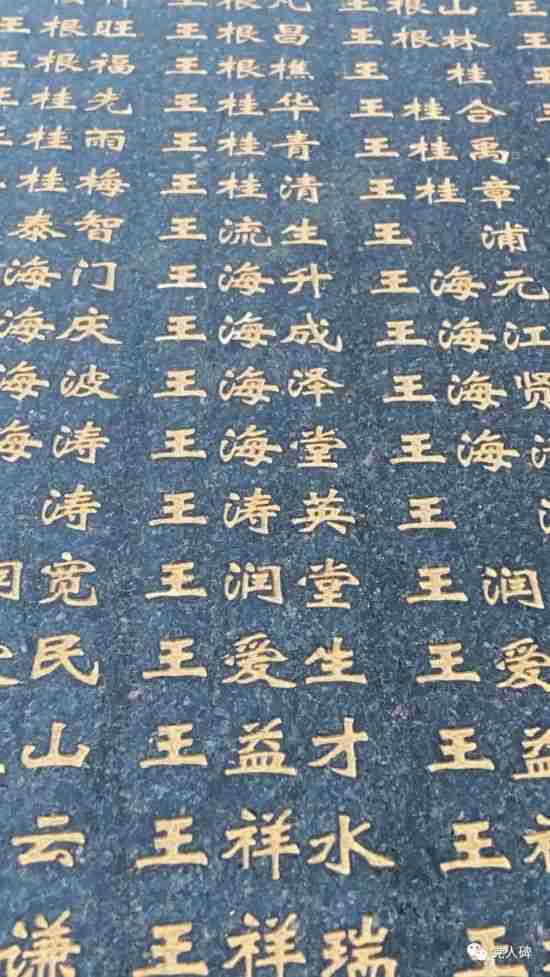 根 王根 王根山 王
王根旺 王根昌 王根林 王
王根福 王根樵 王 桂
王桂先 王桂华 王桂合
王桂雨 王桂青 王桂禹
桂梅 王桂清 王桂章
泰智 王流生 王 浦
海门 王海升 王海元
海庆 王海成 王海江
海波 王海泽 王海贤
海涛 王海堂 王海
涛 王涛英 王
润宽 王润堂 王润
民 王爱生 王爱
山 王益才 王益
云 王祥水 王祥
谦 王祥瑞 王
党人碑